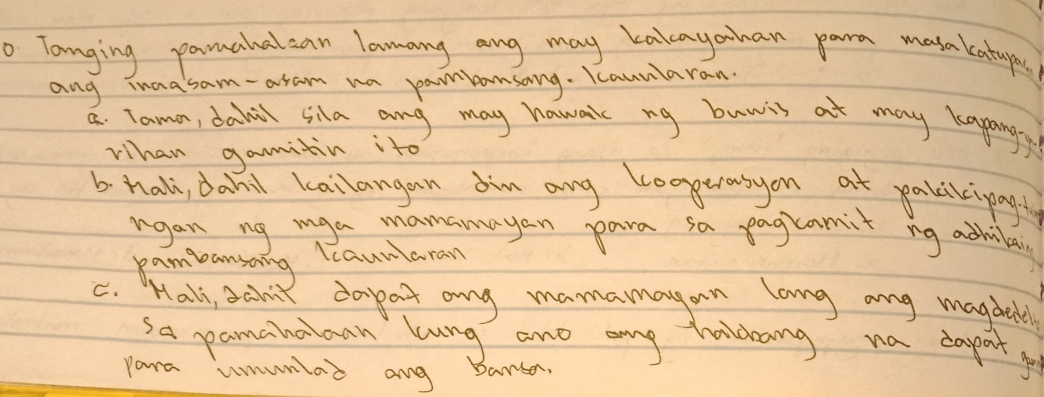 0. Tanging pamahalaan lamang ang may kakayahan para masakatupa
ang inaasam-asam na pambansang kaunlaran.
a. Tama, dahil sila ang may hawak ng buwis at may kapang-
rihan gamitin ito
b. Mali, dahil kailangan din ang kooperasyon at pakikipag-tu
ngan ng mga mamamayan para sa pagkamit ng adhikain
pambansang kaunlaran
c. Mali, dahil dapat ang mamamayan lang ang magdede
sa pamahalaan kung ano ang hakbang na dapat
para umunlad ang bansa.